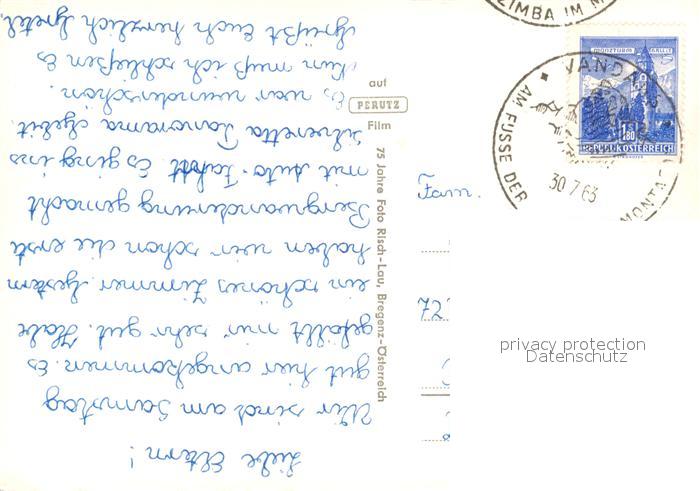 Liebe Eltern!
Wir sind am Samstag
gut hier angekommen. Es
gefällt mir sehr gut. Habe
ein schönes Zimmer. Gestern
haben wir schon die erste
Bergwanderung gemacht
mit Auto-Fahrt. Es ging ins
Silvretta Panorama Gebiet.
Es war wunderschön.
Nun muß ich schließen. Es
Grüßt Euch herzlich Gretel.
auf
PERUTZ
Film
75 Jahre Foto Risch-Lau, Bregenz-Österreich
Fam.
ZIMBA IM M
VAND
AM FUSSE DER
MONTA
30.7.63
MÜNZTURM HALL I.T.
S 1.80
REPUBLIK ÖSTERREICH
privacy protection
Datenschutz